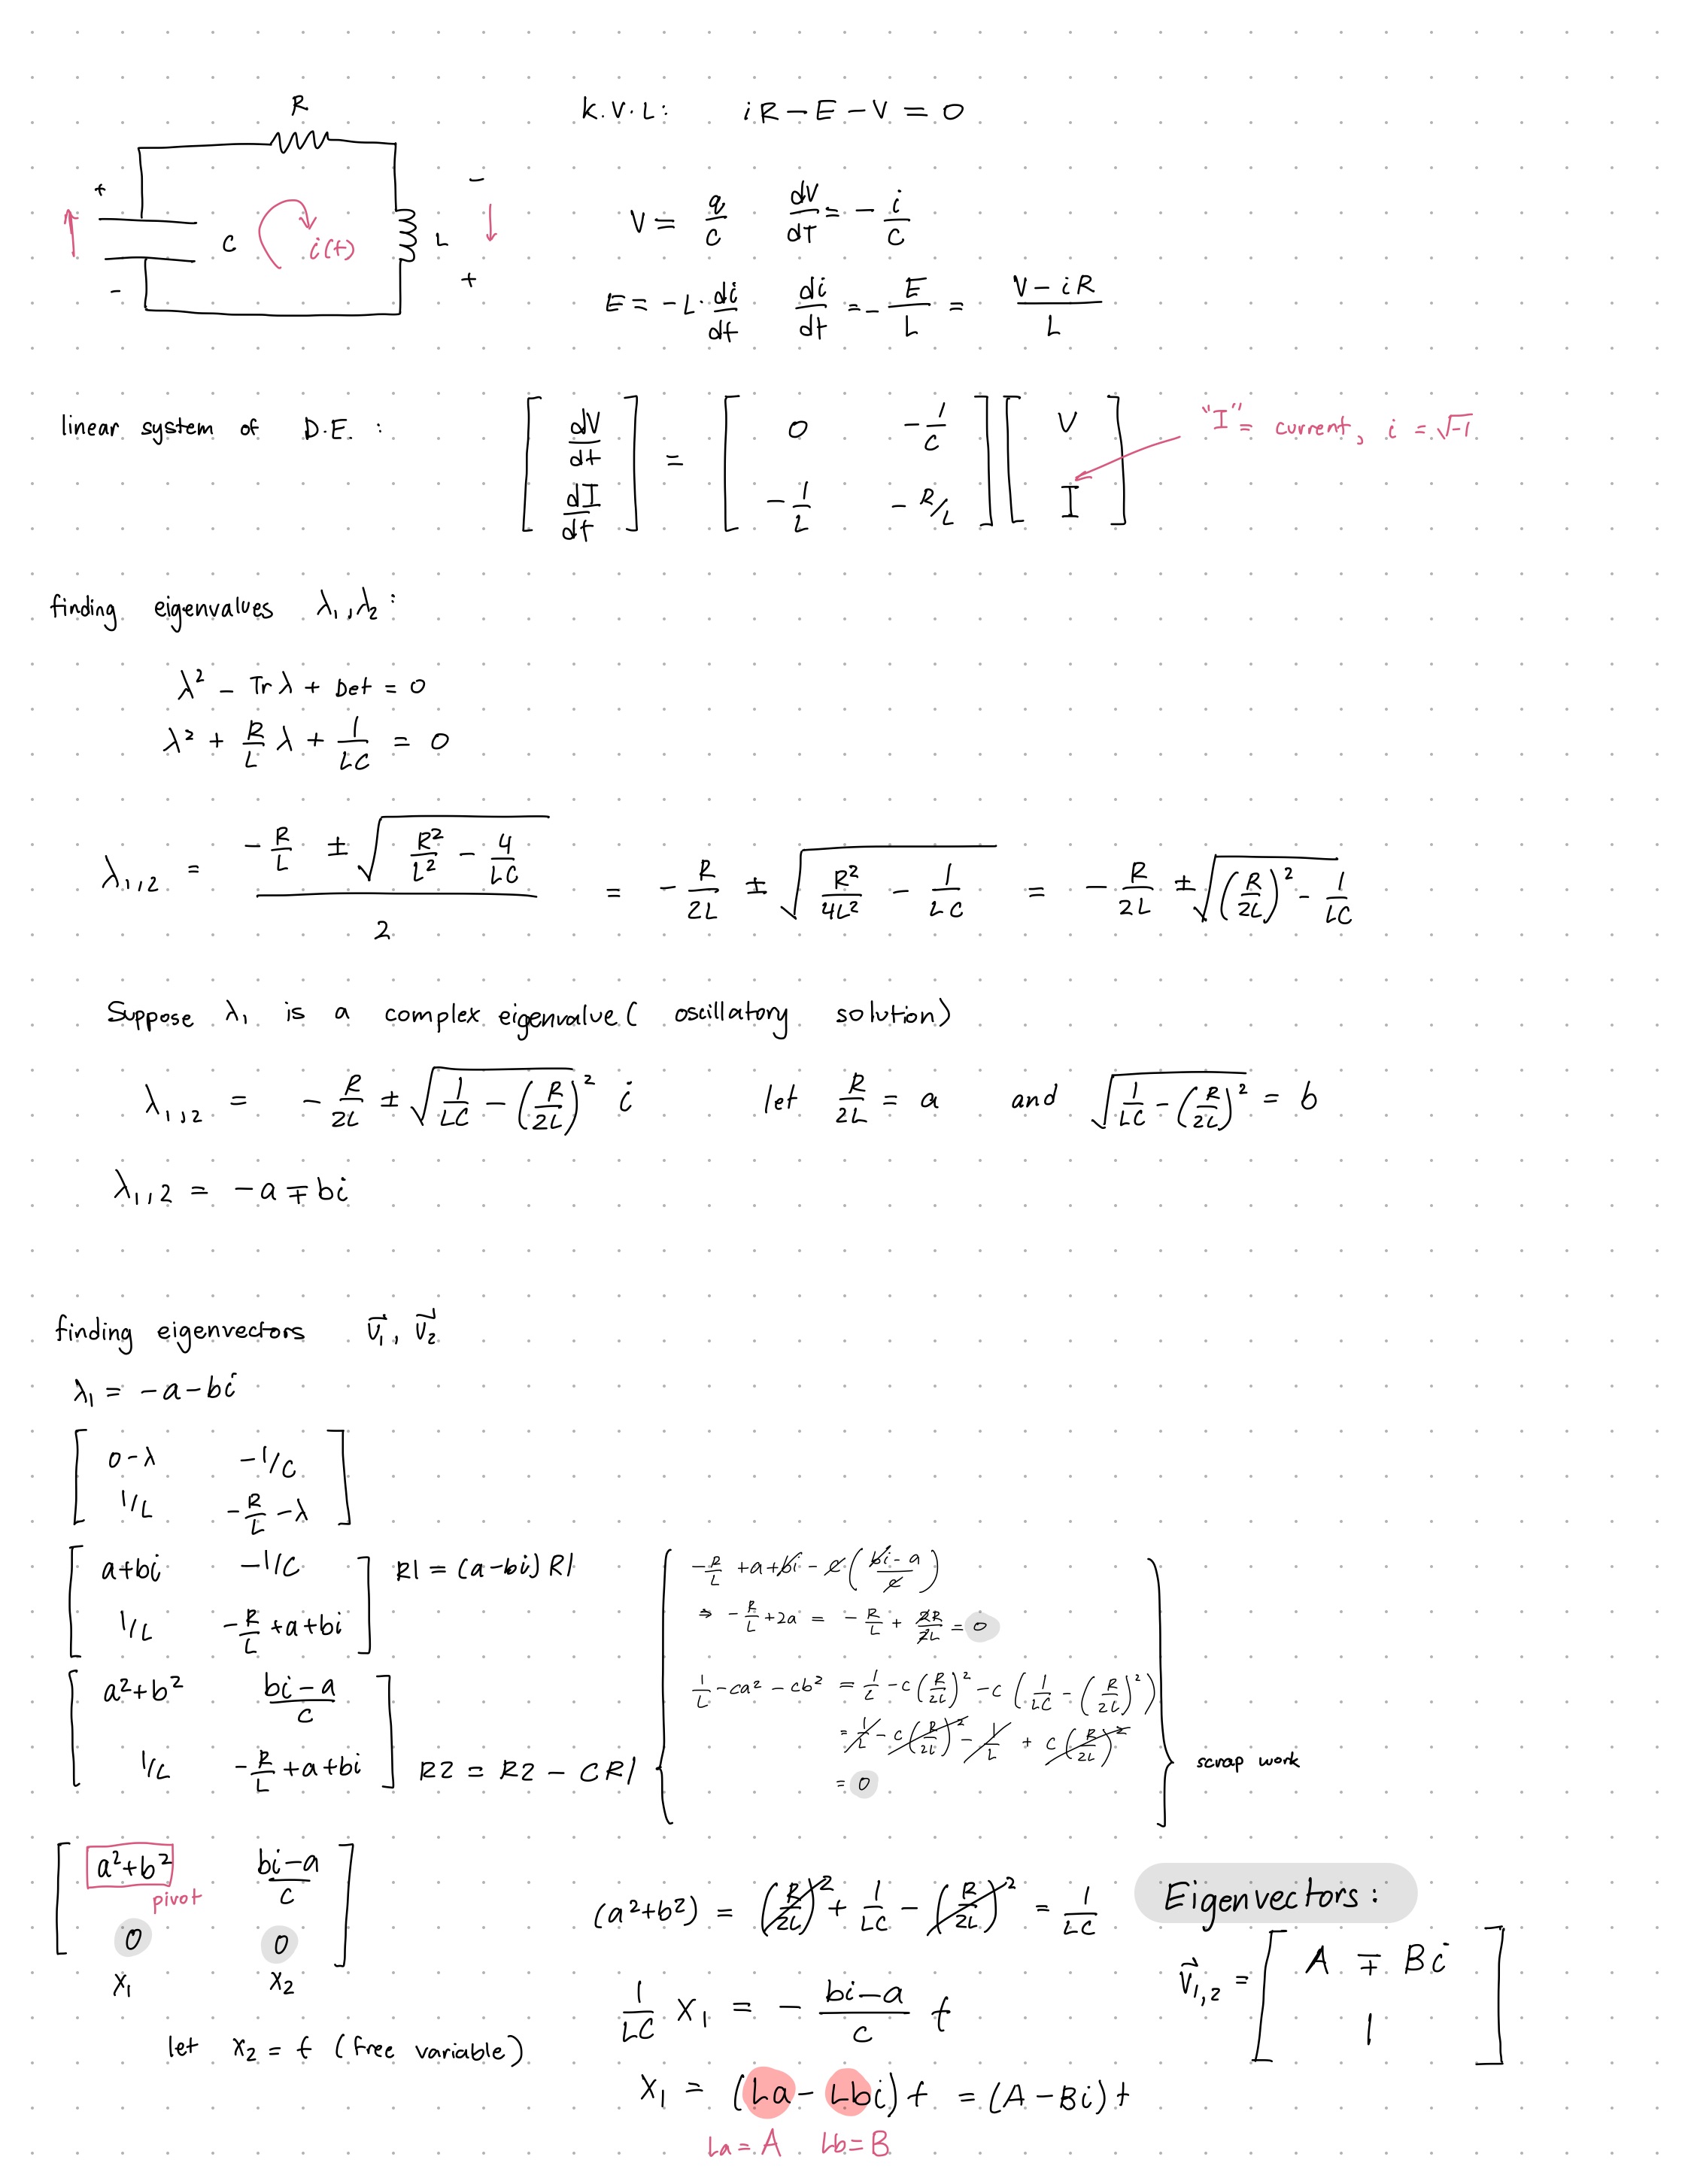 R
+
-
C
i(t)
L
-
+
K.V.L: iR - E - V = 0
V = q/C dV/dT = - i/C
E = -L · di/dt di/dt = - E/L = (V - iR)/L
linear system of D.E. : [dV/dt ; dI/dt] = [0 -1/C ; -1/L -R/L] [V ; I] "I" = current, i = √-1
finding eigenvalues λ1, λ2 :
λ² - Tr λ + Det = 0
λ² + R/L λ + 1/LC = 0
λ1,2 = (-R/L ± √(R²/L² - 4/LC))/2 = - R/2L ± √(R²/4L² - 1/LC) = - R/2L ± √((R/2L)² - 1/LC)
Suppose λ1 is a complex eigenvalue ( oscillatory solution)
λ1,2 = - R/2L ± √(1/LC - (R/2L)²) i let R/2L = a and √(1/LC - (R/2L)²) = b
λ1,2 = -a ∓ bi
finding eigenvectors v⃗1, v⃗2
λ1 = -a - bi
[0-λ -1/C ; 1/L -R/L - λ]
[a+bi -1/C ; 1/L -R/L + a + bi] R1 = (a-bi) R1
[a²+b² (bi-a)/C ; 1/L -R/L + a + bi] R2 = R2 - CR1
-R/L + a + bi - c((bi-a)/c)
⇒ -R/L + 2a = -R/L + 2R/2L = 0
1/L - ca² - cb² = 1/L - c(R/2L)² - c(1/LC - (R/2L)²)
= 1/L - c(R/2L)² - 1/L + c(R/2L)²
= 0
scrap work
[a²+b² (bi-a)/C ; 0 0]
pivot
x1 x2
let x2 = t (free variable)
(a²+b²) = (R/2L)² + 1/LC - (R/2L)² = 1/LC
1/LC x1 = - (bi-a)/C t
x1 = (La - Lbi) t = (A - Bi) t
La = A Lb = B
Eigenvectors :
v⃗1,2 = [A ∓ Bi ; 1]